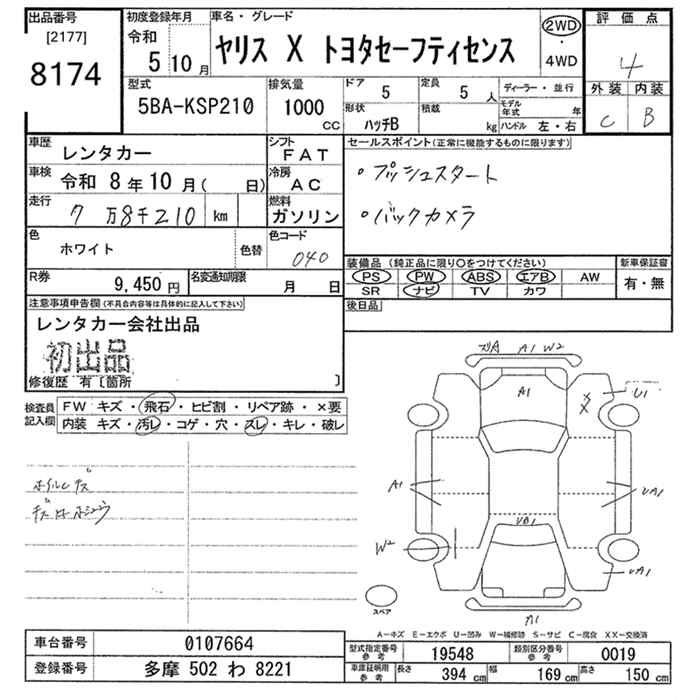 出品番号
[2177]
8174
初度登録年月
令和
5 10 月
車名・グレード
ヤリス X トヨタセーフティセンス
2WD
・
4WD
評価点
4
外装 内装
C B
型式
5BA-KSP210
排気量
1000 CC
ドア 5
定員 5 人
形状 ハッチB
積載 kg
ディーラー・並行
モデル年式 年
ハンドル 左・右
車歴 レンタカー
シフト FAT
車検 令和 8年 10月 ( 日)
冷房 AC
走行 7万8千210 km
燃料 ガソリン
色 ホワイト 色替
色コード 040
R券 9,450 円
名変通知期限 月 日
セールスポイント(正常に機能するものに限ります)
・プッシュスタート
・バックカメラ
装備品(純正品に限り○をつけてください)
PS PW ABS エアB AW
SR ナビ TV カワ
新車保証書
有・無
後日品
注意事項申告欄(不具合内容等は具体的に記入して下さい)
レンタカー会社出品
初出品
修復歴 有〔箇所 〕
検査員記入欄
FW キズ・飛石・ヒビ割・リペア跡・×要
内装 キズ・汚レ・コゲ・穴・スレ・キレ・破レ
A1 W2
A1
U1
A1
UA1
UB1
W2
UA1
A1
スペア
A-キズ E-エクボ U-凹み W-補修跡 S-サビ C-腐食 XX-交換済
車台番号 0107664
登録番号 多摩 502 わ 8221
型式指定番号 参考 19548
類別区分番号 参考 0019
車庫証明用 参考 長さ 394 cm 幅 169 cm 高さ 150 cm